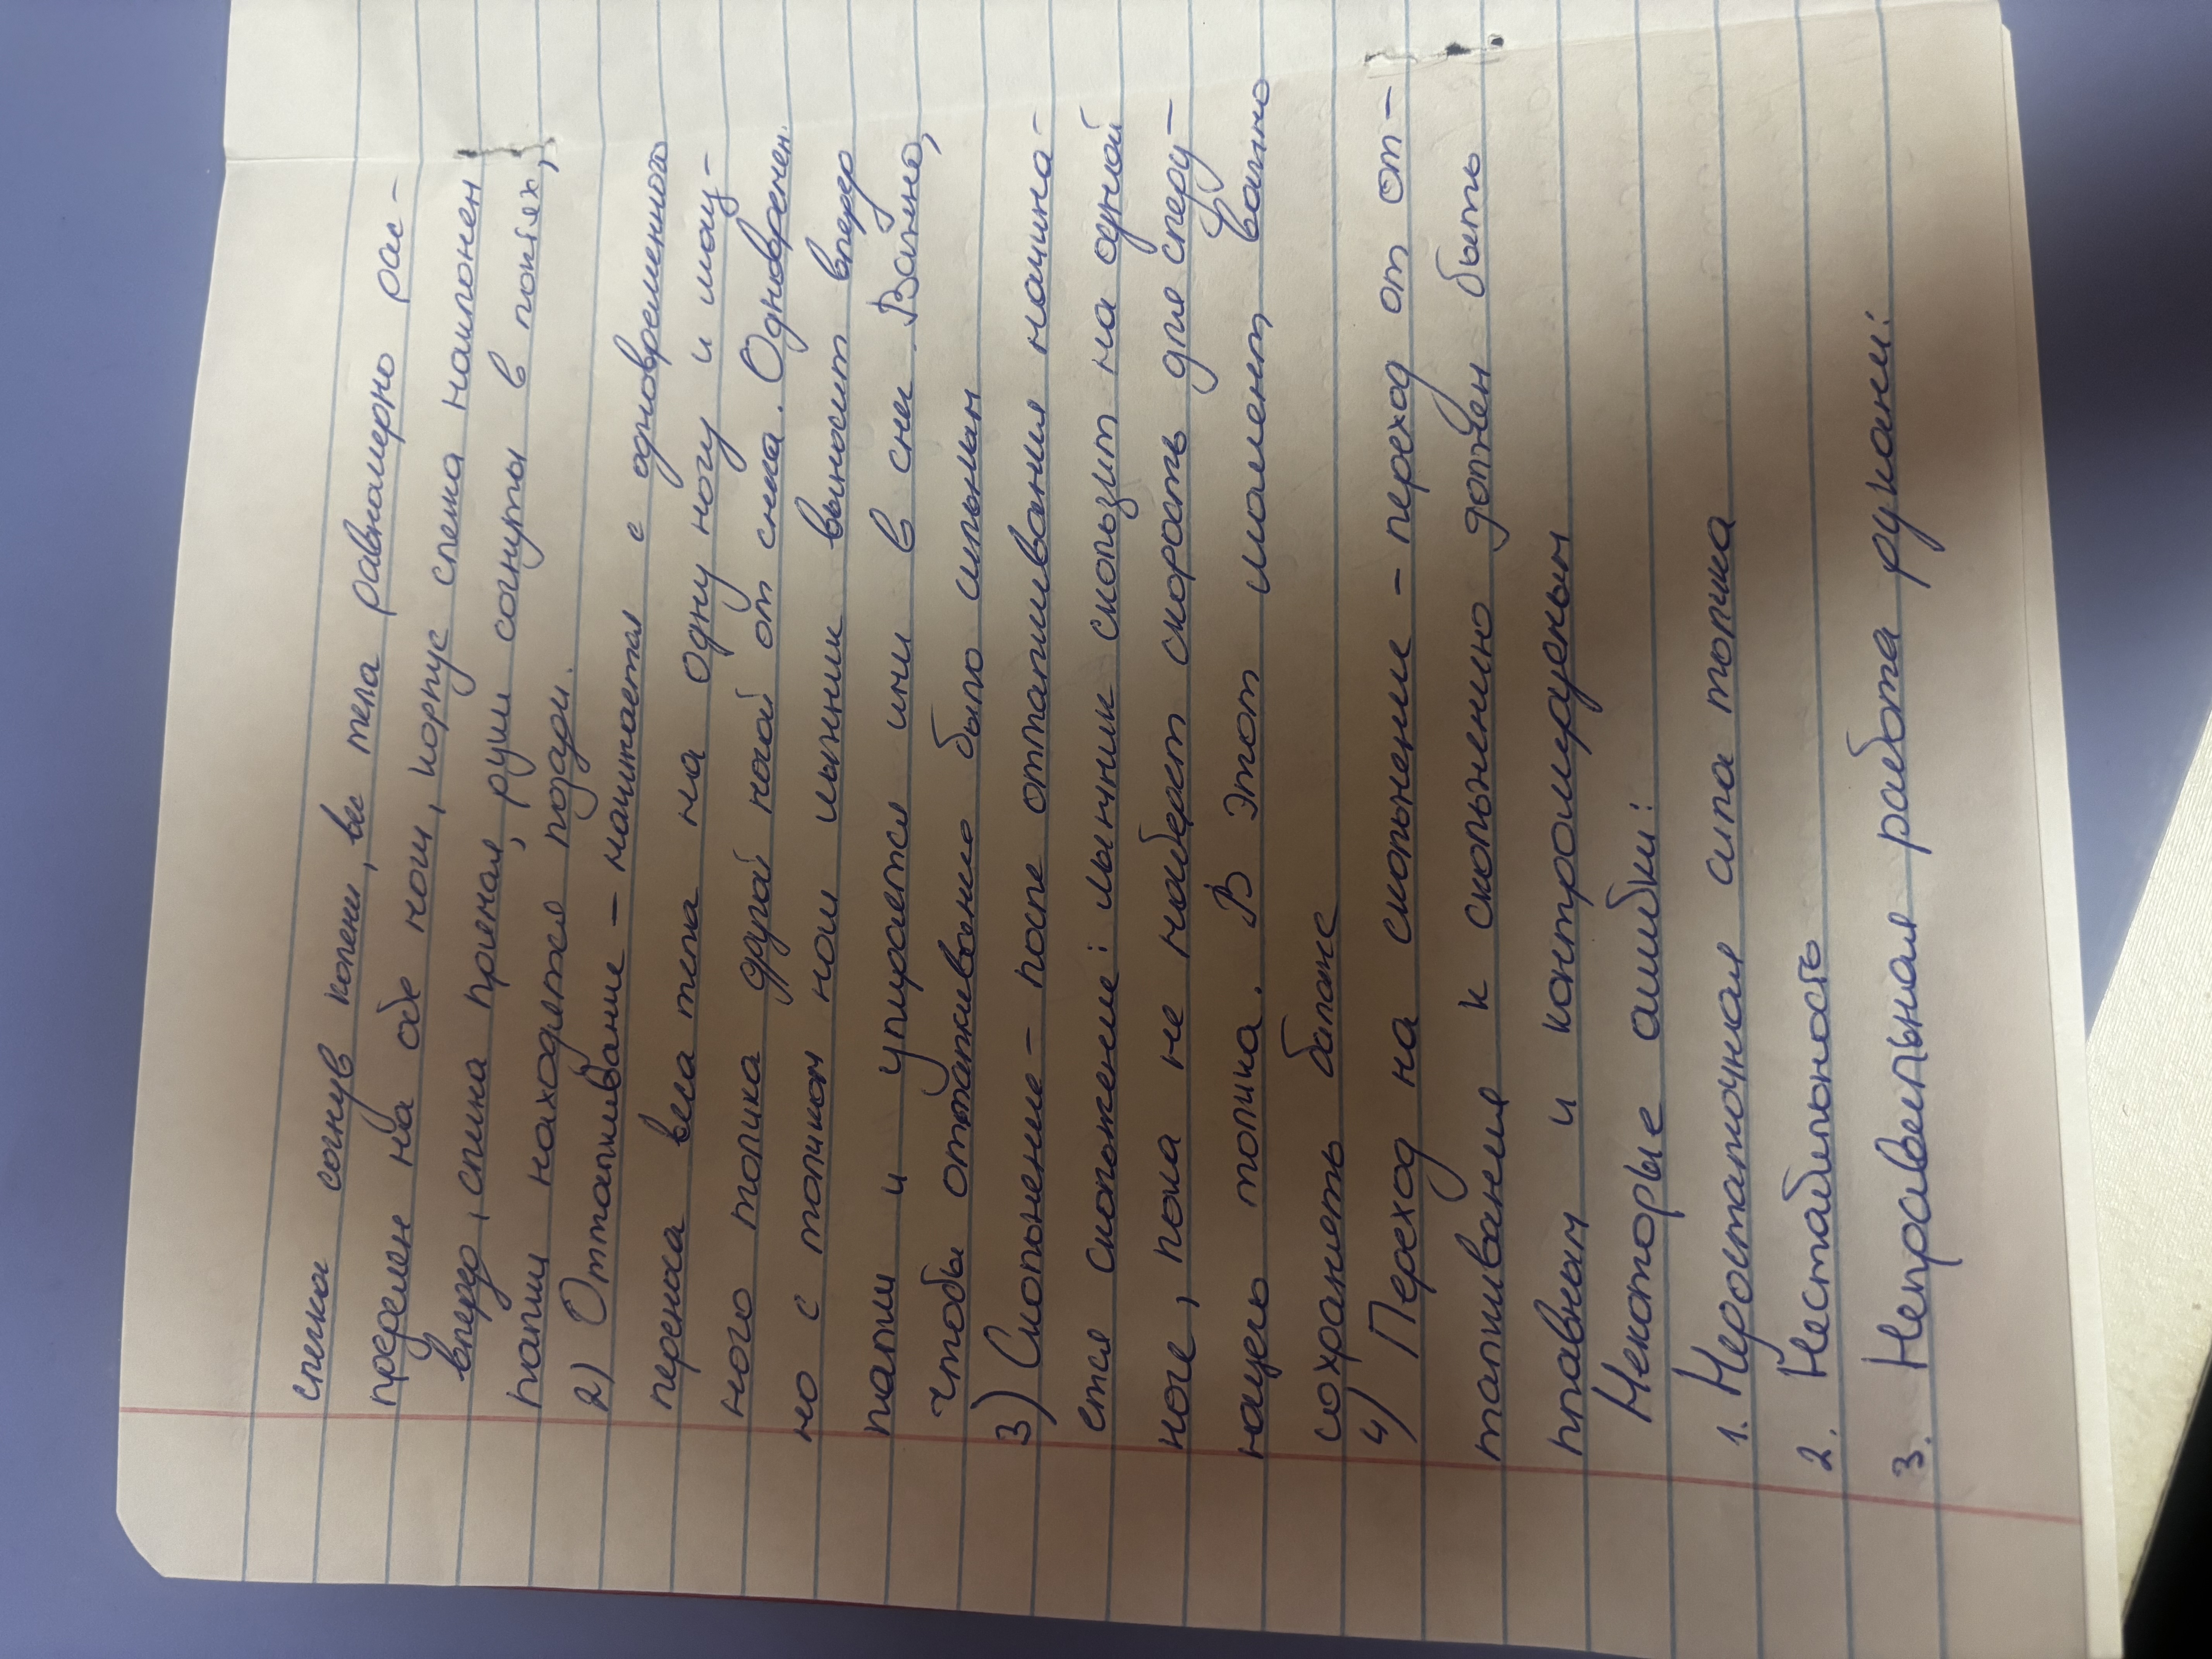 слегка согнув колени, вес тела равномерно рас-
пределен на обе ноги, корпус слегка наклонен
вперед, спина прямая, руки согнуты в локтях,
палки находятся позади.
2) Отталкивание - начинается с одновременного
переноса веса тела на одну ногу и мощ-
ного толчка другой ногой от снега. Одновремен.
но с толчком ноги лыжник выносит вперед
палки и упирается ими в снег. Важно,
чтобы отталкивание было сильным
3) Скольжение - после отталкивания начина-
ется скольжение: лыжник скользит на одной
ноге, пока не наберет скорость для следу-
ющего толчка. В этот момент важно
сохранять баланс
4) Переход на скольжение - переход от от-
талкивания к скольжению должен быть
плавным и контролируемым
Некоторые ошибки:
1. Недостаточная сила толчка
2. Нестабильность
3. Неправильная работа руками: